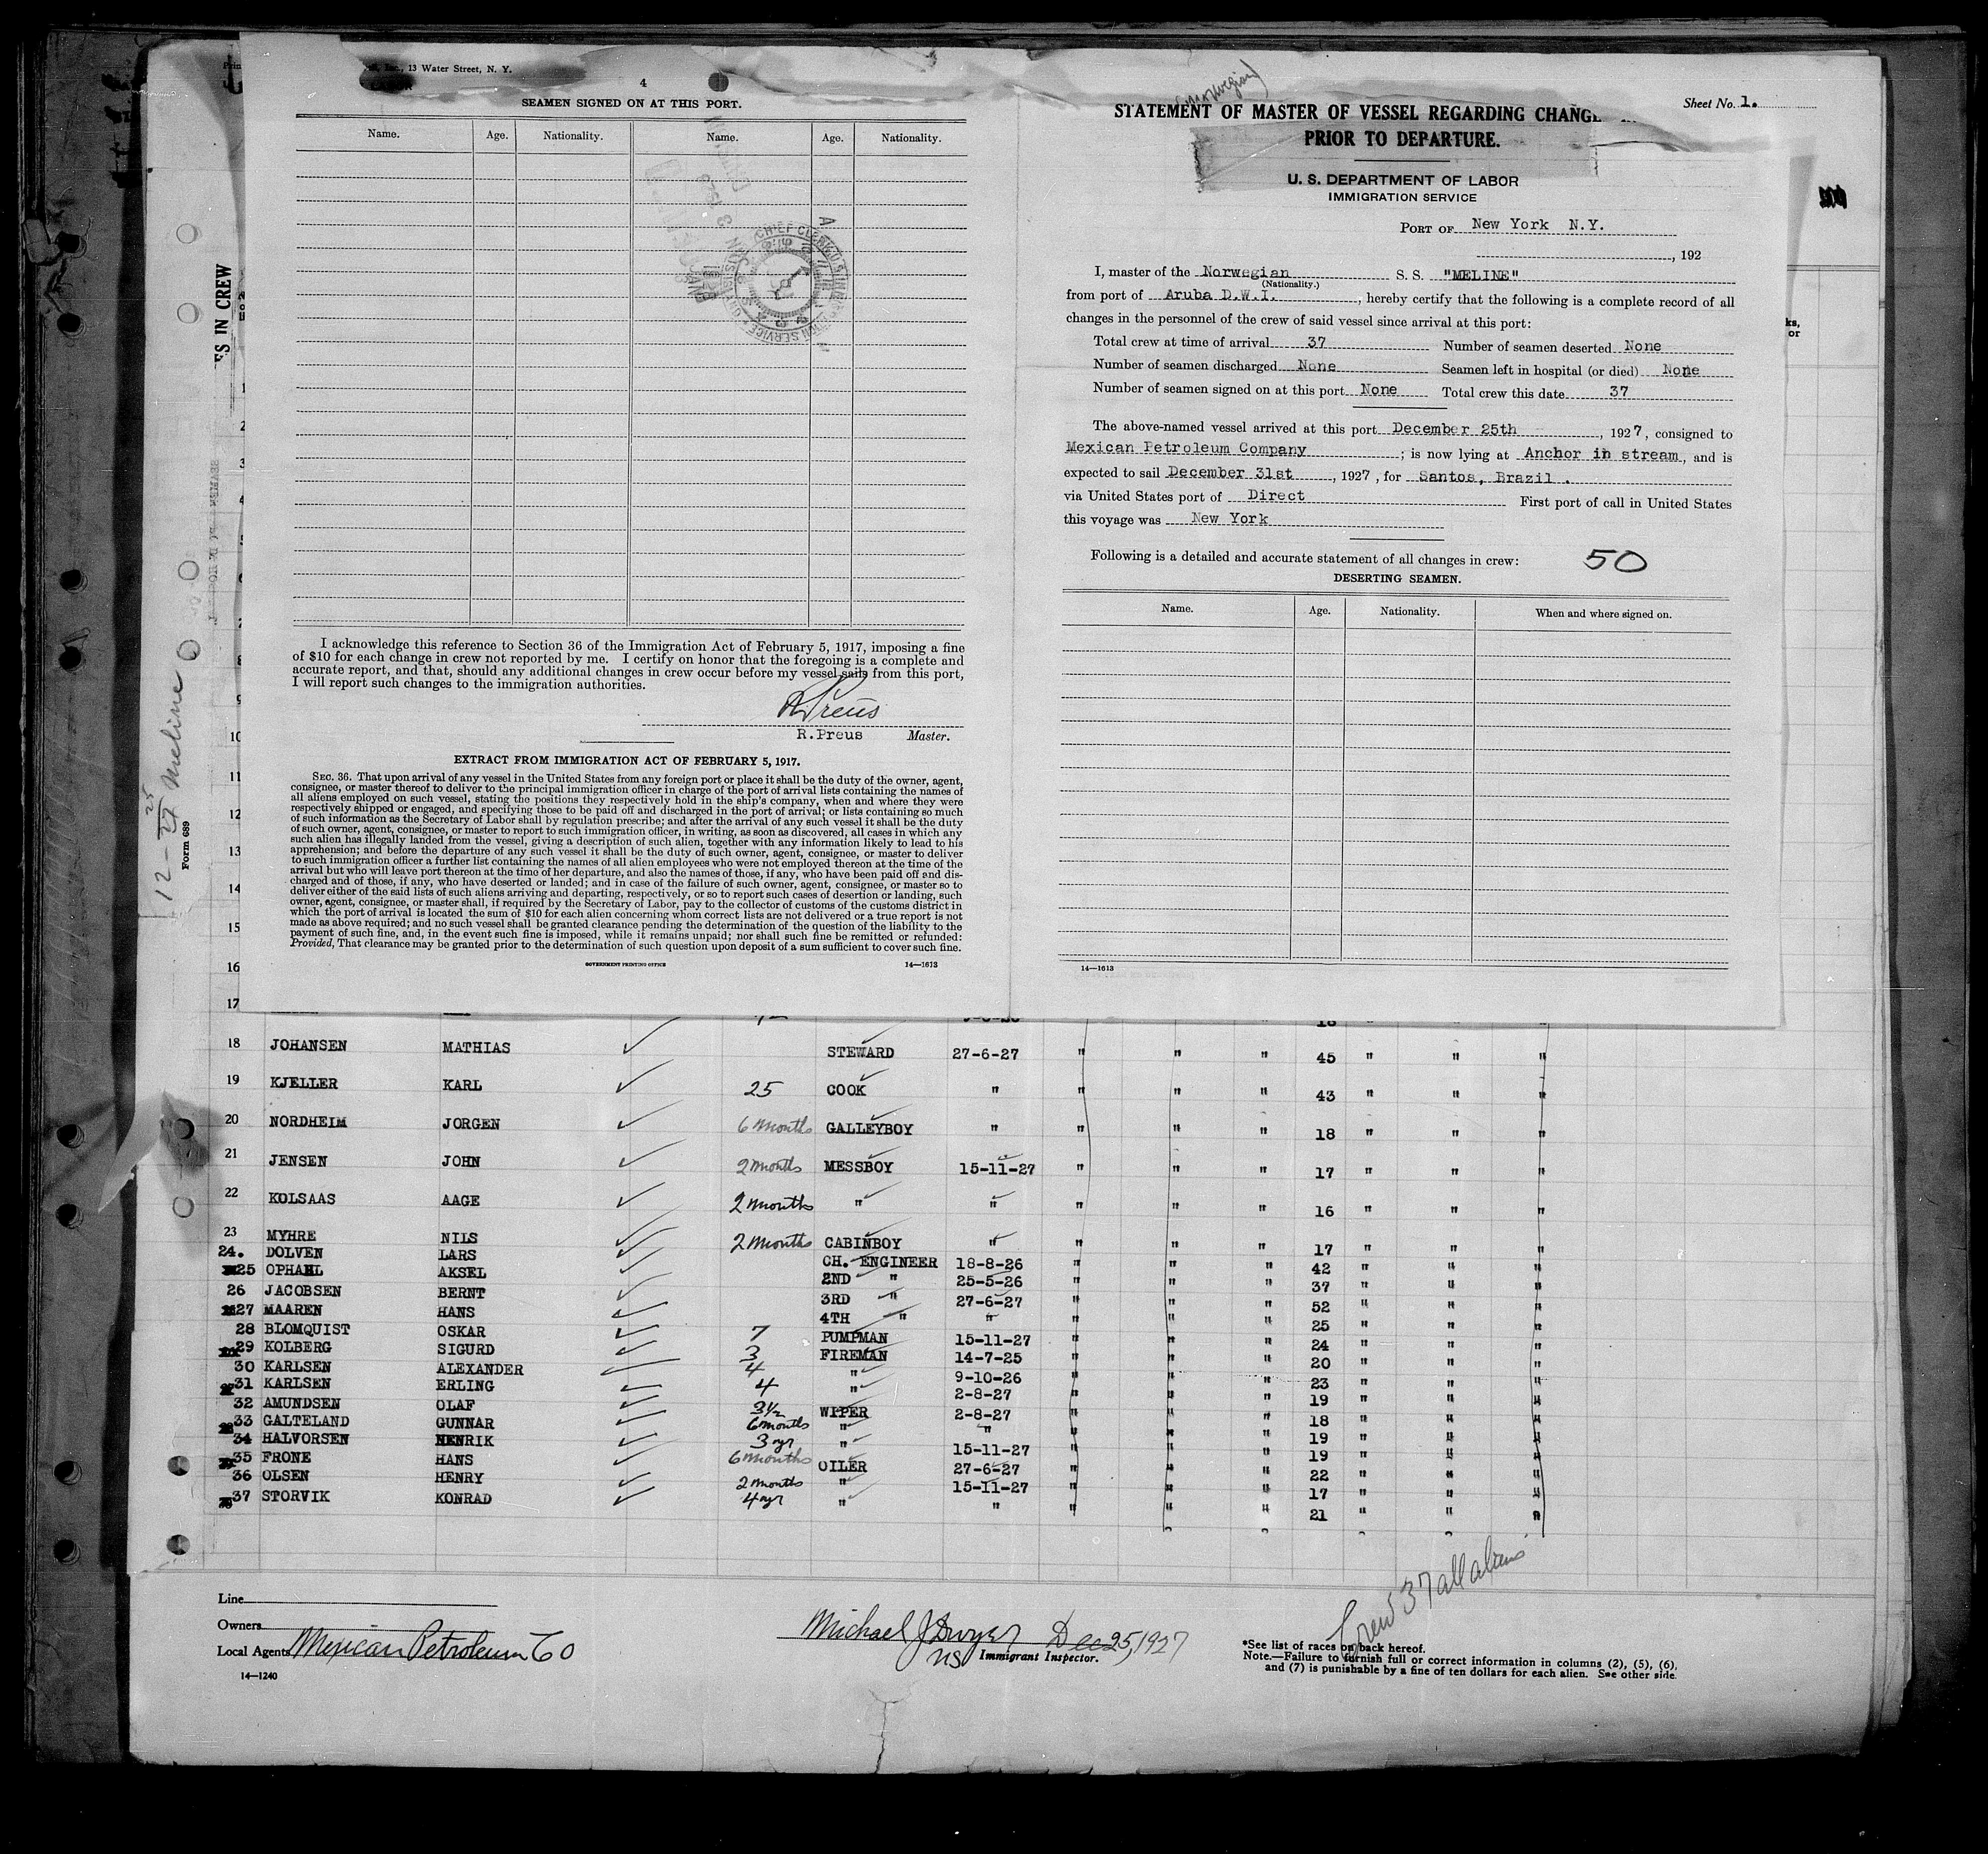 Inc., 13 Water Street, N. Y.
4
SEAMEN SIGNED ON AT THIS PORT.
Name. Age. Nationality. Name. Age. Nationality.
I acknowledge this reference to Section 36 of the Immigration Act of February 5, 1917, imposing a fine
of $10 for each change in crew not reported by me. I certify on honor that the foregoing is a complete and
accurate report, and that, should any additional changes in crew occur before my vessel sails from this port,
I will report such changes to the immigration authorities.
R Preus
R.Preus Master.
EXTRACT FROM IMMIGRATION ACT OF FEBRUARY 5, 1917.
SEC. 36. That upon arrival of any vessel in the United States from any foreign port or place it shall be the duty of the owner, agent,
consignee, or master thereof to deliver to the principal immigration officer in charge of the port of arrival lists containing the names of
all aliens employed on such vessel, stating the positions they respectively hold in the ship's company, when and where they were
respectively shipped or engaged, and specifying those to be paid off and discharged in the port of arrival; or lists containing so much
of such information as the Secretary of Labor shall by regulation prescribe; and after the arrival of any such vessel it shall be the duty
of such owner, agent, consignee, or master to report to such immigration officer, in writing, as soon as discovered, all cases in which any
such alien has illegally landed from the vessel, giving a description of such alien, together with any information likely to lead to his
apprehension; and before the departure of any such vessel it shall be the duty of such owner, agent, consignee, or master to deliver
to such immigration officer a further list containing the names of all alien employees who were not employed thereon at the time of the
arrival but who will leave port thereon at the time of her departure, and also the names of those, if any, who have been paid off and dis-
charged and of those, if any, who have deserted or landed; and in case of the failure of such owner, agent, consignee, or master so to
deliver either of the said lists of such aliens arriving and departing, respectively, or so to report such cases of desertion or landing, such
owner, agent, consignee, or master shall, if required by the Secretary of Labor, pay to the collector of customs of the customs district in
which the port of arrival is located the sum of $10 for each alien concerning whom correct lists are not delivered or a true report is not
made as above required; and no such vessel shall be granted clearance pending the determination of the question of the liability to the
payment of such fine, and, in the event such fine is imposed, while it remains unpaid; nor shall such fine be remitted or refunded:
Provided, That clearance may be granted prior to the determination of such question upon deposit of a sum sufficient to cover such fine.
GOVERNMENT PRINTING OFFICE 14—1613
(Norwegian)
Sheet No. 1.
STATEMENT OF MASTER OF VESSEL REGARDING CHANGE
PRIOR TO DEPARTURE.
U. S. DEPARTMENT OF LABOR
IMMIGRATION SERVICE
PORT OF New York N.Y.
, 192
I, master of the Norwegian S. S. "MELINE"
(Nationality.)
from port of Aruba D.W.I. , hereby certify that the following is a complete record of all
changes in the personnel of the crew of said vessel since arrival at this port:
Total crew at time of arrival 37 Number of seamen deserted None
Number of seamen discharged None Seamen left in hospital (or died) None
Number of seamen signed on at this port None Total crew this date 37
The above-named vessel arrived at this port December 25th , 1927, consigned to
Mexican Petroleum Company ; is now lying at Anchor in stream, and is
expected to sail December 31st , 1927, for Santos, Brazil .
via United States port of Direct First port of call in United States
this voyage was New York
Following is a detailed and accurate statement of all changes in crew: 50
DESERTING SEAMEN.
Name. Age. Nationality. When and where signed on.
14—1613
ES IN CREW
12-27 25 Meline
Form 689
1
2
3
4
7
8
9
10
11
12
13
14
15
16
17
18 JOHANSEN MATHIAS STEWARD 27-6-27 " " " 45 " " "
19 KJELLER KARL 25 COOK " " " " 43 " " "
20 NORDHEIM JORGEN 6 Months GALLEYBOY " " " " 18 " " "
21 JENSEN JOHN 2 months MESSBOY 15-11-27 " " " 17 " " "
22 KOLSAAS AAGE 2 months " " " " " 16 " " "
23 MYHRE NILS 2 Months CABINBOY " " " " 17 " " "
24. DOLVEN LARS CH. ENGINEER 18-8-26 " " " 42 " " "
25 OPHAHL AKSEL 2ND " 25-5-26 " " " 37 " " "
26 JACOBSEN BERNT 3RD " 27-6-27 " " " 52 " " "
27 MAAREN HANS 4TH " " " " " 25 " " "
28 BLOMQUIST OSKAR 7 PUMPMAN 15-11-27 " " " 24 " " "
29 KOLBERG SIGURD 3 FIREMAN 14-7-25 " " " 20 " " "
30 KARLSEN ALEXANDER 4 " 9-10-26 " " " 23 " " "
31 KARLSEN ERLING 4 " 2-8-27 " " " 19 " " "
32 AMUNDSEN OLAF 3½ WIPER 2-8-27 " " " 18 " " "
33 GALTELAND GUNNAR 6 months " " " " " 19 " " "
34 HALVORSEN HENRIK 3 yr " 15-11-27 " " " 19 " " "
35 FRONE HANS 6 months OILER 27-6-27 " " " 22 " " "
36 OLSEN HENRY 2 months " 15-11-27 " " " 17 " " "
37 STORVIK KONRAD 4 yr " " " " " 21 " " "
Crew 37 all aliens
Line
Owners
Local Agents Mexican Petroleum Co
14—1240
Michael J Dwyer Dec 25, 1927
NS Immigrant Inspector.
*See list of races on back hereof.
Note.—Failure to furnish full or correct information in columns (2), (5), (6),
and (7) is punishable by a fine of ten dollars for each alien. See other side.